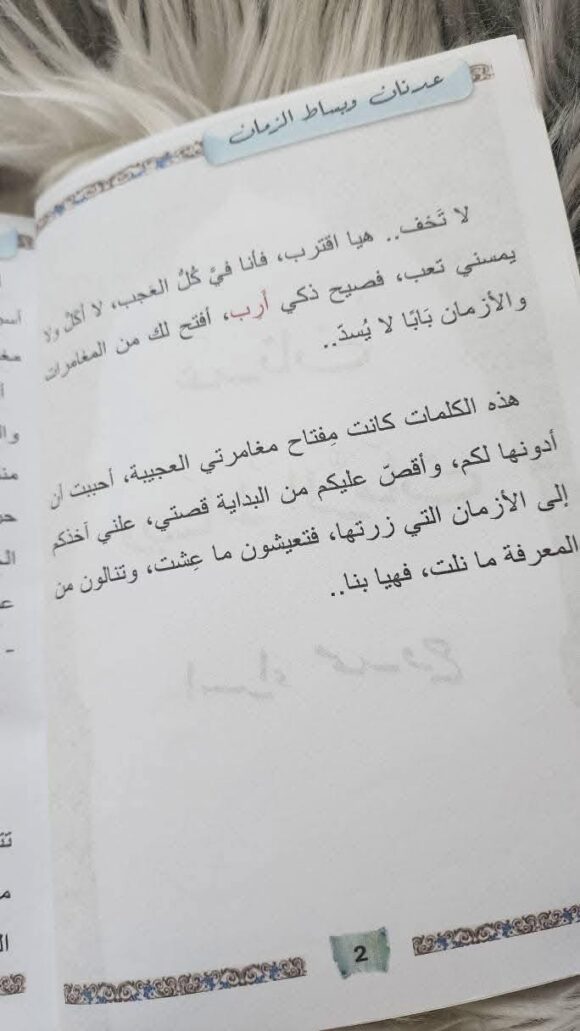 عدنان وبساط الزمان
لا تَخف.. هيا اقترب، فأنا فيَّ كُلُ العَجب، لا أكلُ ولا
يمسني تعب، فصيح ذكي أَرِب، أفتح لك من المغامرات
والأزمان بَابًا لا يُسدّ..
هذه الكلمات كانت مِفتاح مغامرتي العجيبة، أحببت أن
أدونها لكم، وأقصّ عليكم من البداية قصتي، علني آخذكم
إلى الأزمان التي زرتها، فتعيشون ما عِشت، وتنالون من
المعرفة ما نلت، فهيا بنا..
2